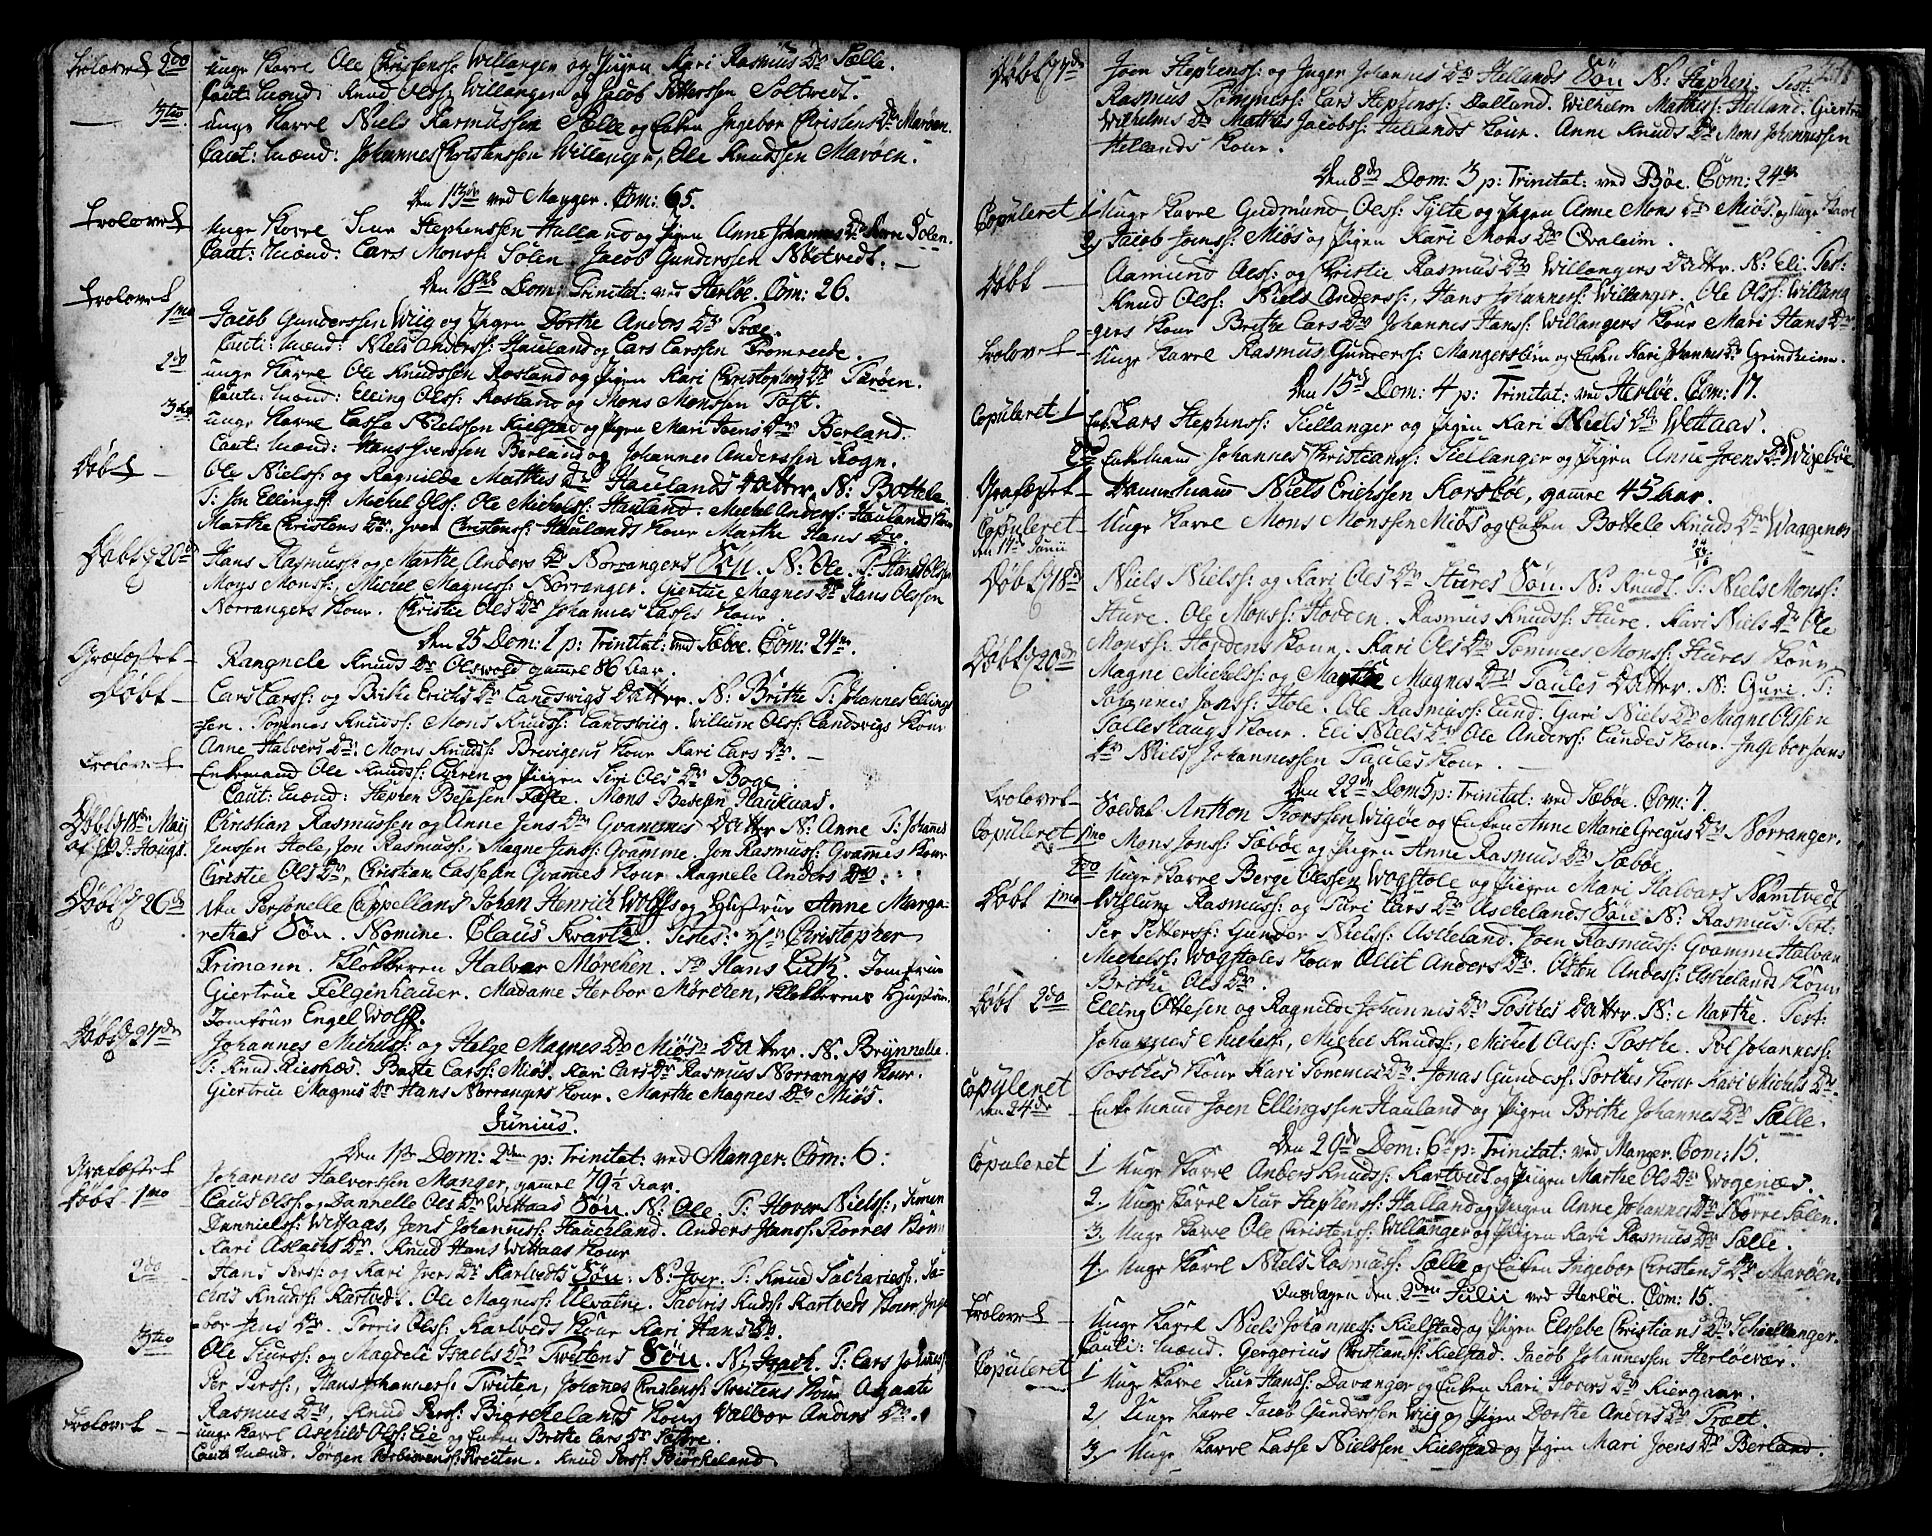 Trolovet 2do unge Karl Ole Christenss: Willanger og Pigen Kari Rasmus Dr Sælle.
Caut: Mænd: Knud Olss: Willanger og Jacob Pettersen Soltvedt.
3tio unge Karl Niels Rasmussen Sælle og Enken Ingebor Christens Dr Marøen.
Caut: Mænd: Johannes Christenssen Willanger, Ole Knudssen Marøen.
Den 13de ved Manger. Com: 65.
Trolovet unge Karl Siur Stephenssen Halland og Pigen Anne Johannes Dr Solen.
Caut: Mænd: Lars Monss: Solen Jacob Gunderssen Nøtvedt.
Den 18de Dom: Trinitat: ved Herløe. Com: 26.
Trolovet 1mo Jacob Gunderssen Wiig og Pigen Dorthe Anders Dr Træe.
Caut: Mænd: Niels Anderss: Hauland og Lars Larssen Fromreede.
2do unge Karl Ole Knudssen Rosland og Pigen Kari Christophers Dr Turøen.
Caut: Mænd: Elling Olss: Rosland og Mons Monssen Toft.
3tio unge Karl Lasse Nielssen Kielstad og Pigen Mari Joens Dr Berland.
Caut: Mænd: Hans Iverssen Berland og Johannes Anderssen Rogn.
Døbt Ole Nielss: og Ragnilde Mathis Dr Haulands Datter. N: Bottele
T: Jon Ellingss: Michel Olss: Ole Michelss: Hauland. Michel Anderss: Haulands Kone
Marthe Christens Dr: Iver Christenss: Haulands Kone Marthe Hans Dr.
Døbt d 20de Hans Rasmuss: og Marthe Anders Dr Norrangers Søn. N: Ole. T: Hans Olssen
Mons Monss: Michel Magness: Norranger. Giertrue Magnes Dr Hans Olssen
Norrangers Kone. Christie Ols Dr Johannes Lasses Kone
Den 25 Dom: 1 p: Trinitat: ved Sæbøe. Com: 24.
Græfæstet Rangnele Knuds Dr Olsvold gamel 86 Aar.
Døbt Lars Larss: og Brithe Erichs Dr Landsvigs Datter. N: Brithe T: Johannes Ellings
sen. Tommes Knudss: Mons Knudss: Landsviig. Willum Olss: Landsvigs Kone
Anne Halvors Dr: Mons Knudss: Brevigens Kone Kari Lars Dr.
Trolovet Enkemand Ole Knudss: og Pigen Siri Ols Dr Boge
Caut: Mænd: Stephen Besesen Fæste. Mons Besesen Hauknas.
Døbt d 18de Maij Christian Rasmussen og Anne Jens Dr Qvammes Datter N: Anne T: Johannes
Jenssen Hole, Jon Rasmuss: Magne Jenss: Qvamme. Jon Rasmuss: Qvammes Kone
Christie Ols Dr, Christian Lassesen Qvammes Kone Ragnele Anders Dr.
Døbt d 26de Den Personelle Cappelland Johan Henrich Wolffs og Hustrue Anne Marga-
rethas Søn. Nomine. Claus Kwartz. Testes: Christopher
Frimann. Klokkeren Halvor Mørchen. Hans Lutz. Jomfrue
Giertrue Felginhauer. Madame Herbor Mørchen, Klokkerens Hustrue.
Jomfrue Engel Wolff.
Døbt d 27de Johannes Michelss: og Helge Magnes Dr Miøs Datter. N. Brynnelle.
T: Knud Rieshos. Baste Larss: Miøs. Kari Lars Dr Rasmus Norrangers Kone.
Giertrue Magnes Dr Hans Norrangers Kone. Marthe Magnes Dr Miøs.
Junius.
Den 1ste Dom: 2den p: Trinitat: ved Manger. Com: 6.
Græfæstet Johannes Halverssen Manger, gamel 79½ Aar.
Døbt 1mo Olss: og Dannelle Ols Dr Wettaas Søn. N: Ole. T: Hover Nielss:, Simen
Dannielss: Wettaas, Jens Johanness: Haucland. Anders Janss: Storres Kone
Kari Aslachs Dr. Knud Hans Wettaas Kone
2do Hans Perss: og Kari Ivers Dr Kartvedts Søn. N: Iver. T: Knud Sachariess: Sa-
charis Knudss: Kartvedt. Ole Magness: Ulvatne. Kartvedts Kone Inge
bor Jens Dr. Torris Olss: Kartvedts Kone Kari Hans Dr.
3tio Ole Siurss: og Magdeli Isachs Dr Tweitens Søn. N: Isach. T: Lars Johannes:
Per Perss:, Hans Johanness: Tweiten, Johannes Christenss: Tweitens Kone Agaati
Rasmus Dr, Knud Perss: Biørkelands Kone Valbor Anders Dr.
Trolovet unge Karl Aschild Olss: Lie og Enken Brithe Lars Dr Sætre.
Caut: Mænd. Jørgen Tweiten. Knud Perss: Biørkeland.
Døbt d 7de Joen Stephenss: og Inger Johannes Dr Hellands Søn N: Stephen. Test:
Rasmus Tommess: Lars Stephenss: Dalland. Wilhelm Mathiss: Helland. Giertru
Wilhelms Dr Mathis Jacobss: Hellands Kone. Anne Knuds Dr Mons Johannessen
Hellands Kone.
Den 8de Dom: 3 p: Trinitat: ved Bøe. Com: 24.
Copuleret 1 Unge Karl Gudmund Olss: Sylte og Pigen Anne Mons Dr Miøs og unge Karl
2 Jacob Joenss: Miøs og Pigen Kari Mons Dr Qvaleim.
Døbt Aamund Olss: og Christie Rasmus Dr Willangers Datter. N: Eli. Test:
Knud Olss: Niels Anderss:, Hans Johanness: Willanger. Ole Olss: Willang
gers Kone Brithe Lars Dr Johannes Hanss: Willangers Kone Mari Hans Dr
Trolovet Unge Karl Rasmus Gunderss: Mangersbøen og Enken Kari Johannes Dr Grindheim.
Den 15de Dom: 4 p: Trinitat: ved Herløe. Com: 17.
Copuleret 1 Lars Stephenss: Skiellanger og Pigen Kari Niels Dr Wettaas.
2do Enkemand Johannes Christianss: Skiellanger og Pigen Anne Joens Dr Wigebøe
Græfæstet Dannemand Niels Erichssen Korsbøe, gamel 45 Aar.
Copuleret den 17de Junii Unge Karl Mons Monssen Miøs og Enken Bottele Knuds Dr Waagenes
Døbt d 18de Niels Nielss: og Kari Ols Dr Stures Søn. N: Knud. T: Niels Monss:
Sture. Ole Monss: Hodden. Rasmus Knudss: Sture. Kari Niels Dr Ole
Monss: Hoddens Kone. Kari Ols Dr Tommes Monss: Stures Kone
Døbt d 20de Magne Michelss: og Marthe Magnes Dr Taules Datter. N: Guri. T:
Johannes Jonss: Hole. Ole Rasmuss: Lund. Guri Niels Dr Magne Olssen
Talleshaugs Kone. Eli Niels Dr Ole Anderss: Lundes Kone. Ingebor Jans
Dr Niels Johannessen Taules Kone.
Den 22de Dom 5 p: Trinitat: ved Sæbøe. Com: 7.
Trolovet Soldat Anthon Thorssen Wigøe og Enken Anne Marie Gregus Dr Norranger.
Copuleret 1mo Mons Jonss: Sæbøe og Pigen Anne Rasmus Dr Sæbøe.
2do Unge Karl Berge Olssen Wogstole og Pigen Mari Halvars Namtvedt
Døbt 1mo Willum Rasmuss: og Siri Lars Dr Aschelands Søn N: Rasmus. Test:
Per Petterss: Gunder Nielss: Askeland. Joen Rasmuss: Qvamme Halvar
Michelss: Wogstoles Kone Ollit Anders Dr. Østen Anderss: Askelands Kone
Brithe Ols Dr.
Døbt 2do Elling Ottesen og Ragnilde Johannes Dr Toskes Datter. N: Marthe. Test:
Johannes Michelss:, Michel Knudss:, Michel Olss: Toske. Pol Johanness:
Toskes Kone Kari Tommes Dr. Jonas Gunderss: Toskes Kone Kari Michels Dr.
Copuleret den 24de Enkemand Joen Ellingssen Hauland og Pigen Brithe Johannes Dr Sælle.
Den 29de Dom: 6te p: Trinitat: ved Manger. Com: 15.
Copuleret 1 Unge Karl Anders Knudss: Kartvedt og Pigen Marthe Ols Dr Wogenæs.
2. Unge Karl Siur Stephenss: Halland og Pigen Anne Johannes Dr Norre Solen.
3. Unge Karl Ole Christenss: Willanger og Pigen Kari Rasmus Dr Sælle.
4. Unge Karl Niels Rasmuss: Sælle og Enken Ingebor Christens Dr Marøen.
Onsdagen den 2den Julii ved Herløe. Com: 15.
Trolovet Unge Karl Niels Johanness: Kielstad og Pigen Elssebe Christians Dr Schiellanger.
Cauti: Mænd. Gergorius Christianss: Kielstad. Jacob Johannessen Herløevær.
Copuleret 1 Unge Karl Siur Hanss: Davanger og Enken Kari Hovers Dr Kiergaar.
2. Unge Karl Jacob Gunderssen Wiig og Pigen Dorthe Anders Dr Træet.
3. Unge Karl Lasse Nielssen Kielstad og Pigen Mari Joens Dr Berland.